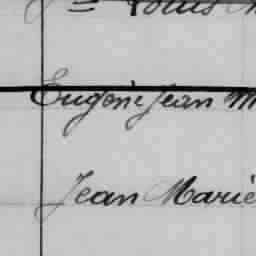 Louis
Eugène Jean M
Jean Marie